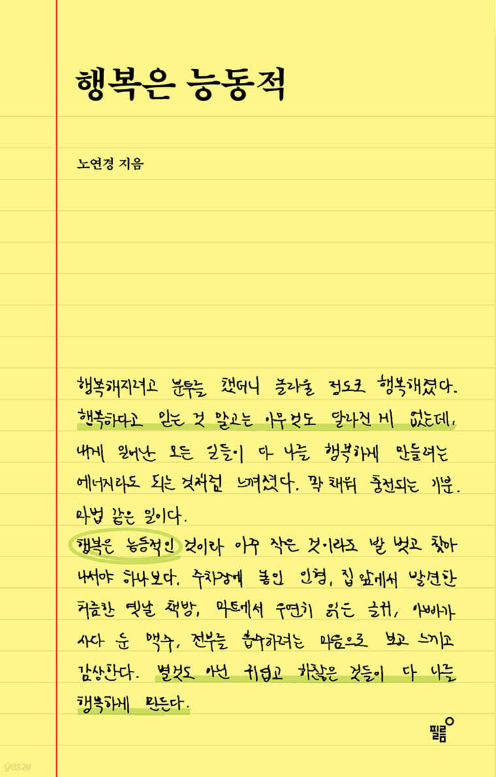 행복은 능동적
노연경 지음
행복해지려고 분투를 했더니 놀라울 정도로 행복해졌다.
행복하다고 믿는 것 말고는 아무것도 달라진 게 없는데,
내게 일어난 모든 일들이 다 나를 행복하게 만들려는
에너지라도 되는 것처럼 느껴졌다. 꽉 채워 충전되는 기분.
마법 같은 일이다.
행복은 능동적인 것이라 아주 작은 것이라도 발 벗고 찾아
나서야 하나보다. 주차장에 놓인 인형, 집 앞에서 발견한
허름한 옛날 책방, 마트에서 우연히 읽은 글귀, 아빠가
사다 둔 맥주, 전부를 흡수하려는 마음으로 보고 느끼고
감상한다. 별것도 아닌 귀엽고 하찮은 것들이 다 나를
행복하게 만든다.
필름
yes24